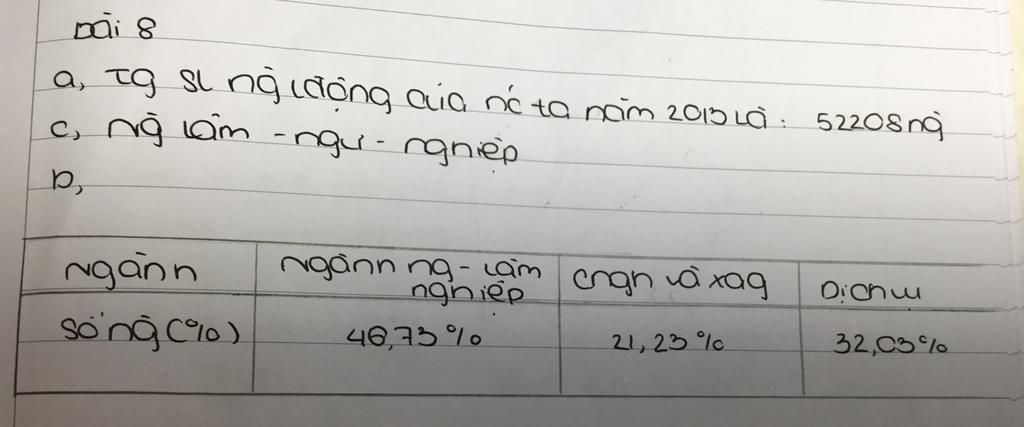 Bài 8
a, Tg SL ng lđộng của nc ta năm 2013 là : 52208 ng
c, ng lâm - ngư - nghiệp
b,
Ngành | Ngành ng - lâm nghiệp | cngh và xdg | Dịch vụ
Số ng (%) | 46,73% | 21,23% | 32,03%